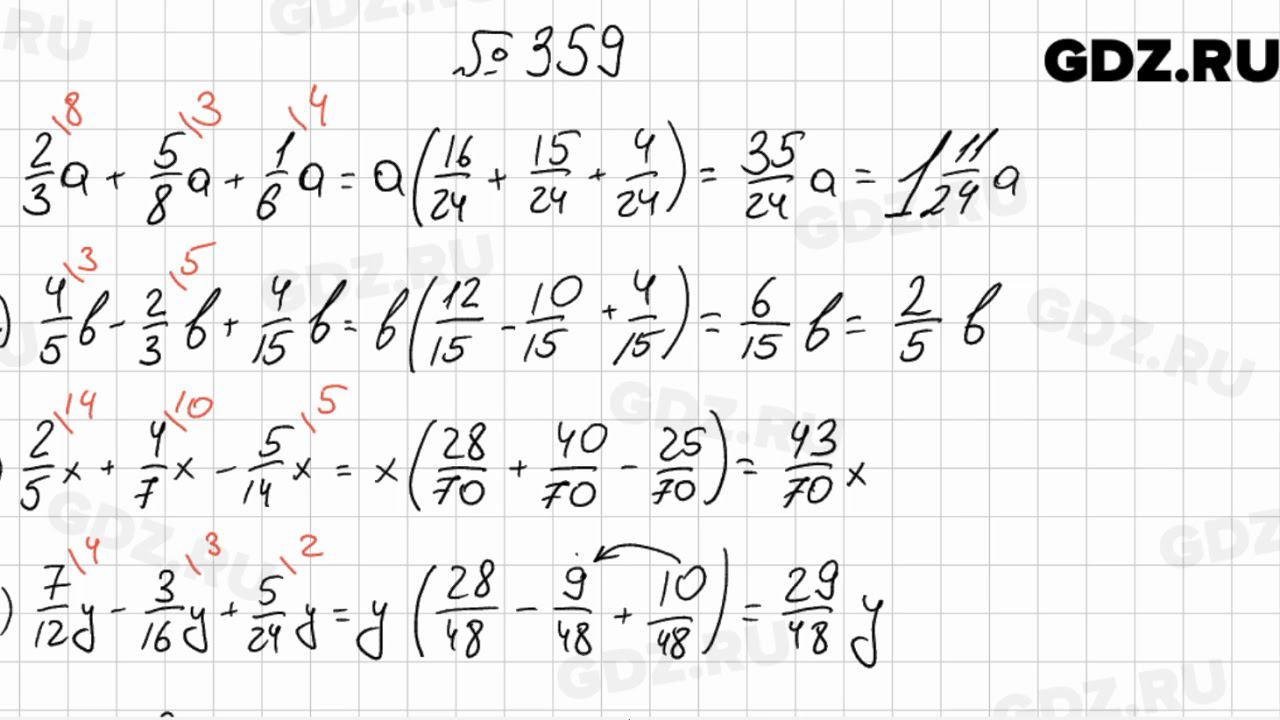 № 359
GDZ.RU
2/3\8 a + 5/8\3 a + 1/6\4 a = a(16/24 + 15/24 + 4/24) = 35/24 a = 1 11/24 a
) 4/5\3 в - 2/3\5 в + 4/15 в = в(12/15 - 10/15 + 4/15) = 6/15 в = 2/5 в
) 2/5\14 x + 4/7\10 x - 5/14\5 x = x(28/70 + 40/70 - 25/70) = 43/70 x
) 7/12\4 y - 3/16\3 y + 5/24\2 y = y(28/48 - 9/48 + 10/48) = 29/48 y